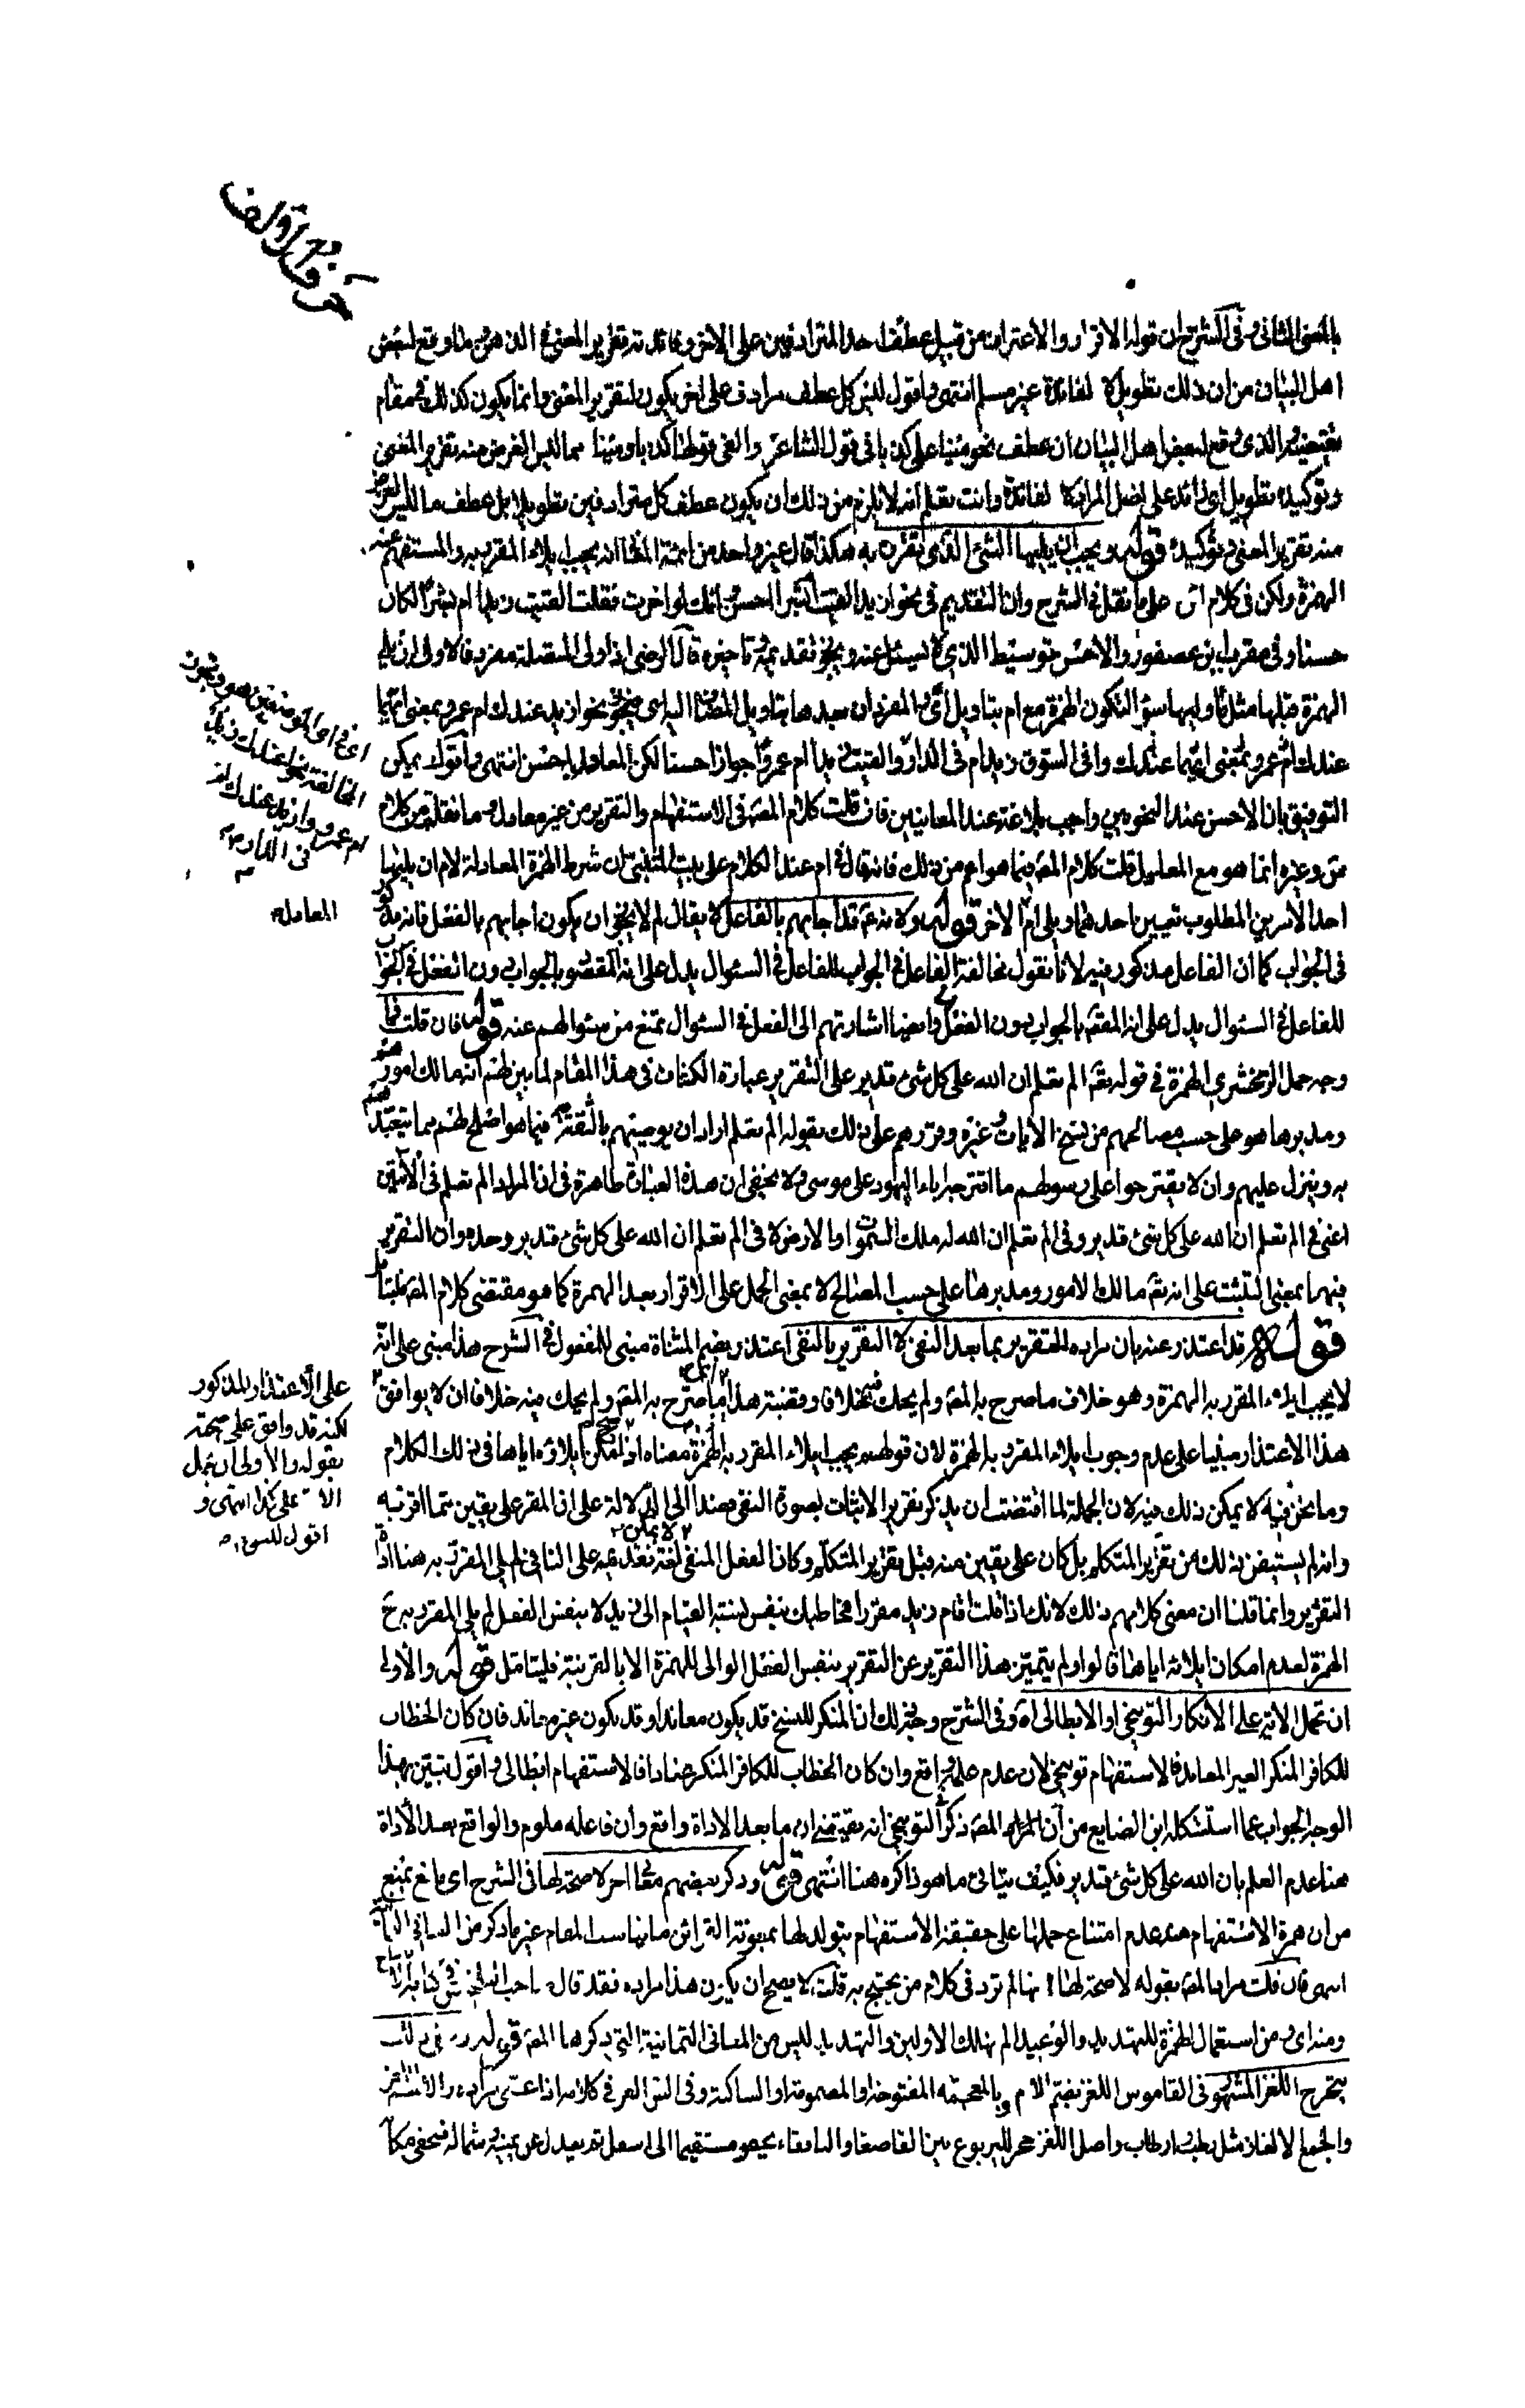 بالمعنى الثاني وفي الشرح ان قوله الاقرار والاعتراف من قبيل عطف احد المترادفين على الاخر وفائدته تقرير المعنى في الذهن وما وقع لبعض
اهل البيان من ان ذلك تطويل لا لفائدة غير مسلم انتهى واقول ليس كل عطف مرادف على اخر يكون لتقرير المعنى وانما يكون كذلك في مقام
يقتضيه والذي وقع لبعض اهل البيان ان عطف نحو مينا على كذبا في قول الشاعر والفى قولها كذبا ومينا مما ليس الغرض منه تقرير المعنى
وتوكيده تطويل اي زائد على اصل المراد لا لفائدة وانت تعلم انه لا يلزم من ذلك ان يكون عطف كل مترادفين تطويلا بل عطف ما ليس الغرض
منه تقرير المعنى وتوكيده قوله ويجب ان يليها الشئ الذي تقرره به هكذا قال غير واحد من ائمة المعاني انه يجب ايلاء المقرر به والمستفهم عنه
الهمزة ولكن في كلام س على ما نقل في الشرح وان التقديم في نحو ازيدا لقيت ام بشرا احسن وانك لو اخرت فقلت القيت زيدا ام بشرا لكان
حسنا وفي مقرب ابن عصفور والاحسن توسيط الذي لا يسئل عنه ويجوز تقديمه وتاخيره قال الرضي اذا ولى المتصلة مفرد فالاولى ان يلي
الهمزة قبلها مثل ما وليها سواء لتكون الهمزة مع ام بتاويل اي والمفردان بعدها بتاويل المضاف اليه اي فنحو ازيد عندك ام عمرو بمعنى ايهما
عندك ام عمرو بمعنى ايهما عندك وافي السوق زيد ام في الدار والقيت زيدا ام عمروا جوازا حسنا لكن المعادلة احسن انتهى واقول يمكن
التوفيق بان الاحسن عند النحويين واجب بلاغة عند المعانيين فان قلت كلام المصـ في الاستفهام والتقرير من غير معادل وما نقلته من كلام
س وغيره انما هو مع المعادل قلت كلام المصـ فيما هو اعم من ذلك فانه قال في ام عند الكلام على بيت المتنبي ان شرط الهمزة المعادلة لام ان يليها
احد الامرين المطلوب تعيين احدهما ويلى ام الاخر قوله ولانه عم قد اجابهم بالفاعل لا يقال لم لا يجوز ان يكون اجابهم بالفعل فانه مذكور
في الجواب كما ان الفاعل مذكور فيه لانا نقول مخالفة الفاعل في الجواب للفاعل في السئوال يدل على انه المقصود بالجواب دون الفعل في الجواب
للفاعل في السئوال يدل على انه المقصـ بالجواب دون الفعل وايضا اشارتهم الى الفعل في السئوال تمنع من سئوالهم عنه قوله فان قلت ما
وجه حمل الزمخشري الهمزة في قوله تعـ الم تعلم ان الله على كل شئ قدير على التقرير عبارة الكشاف في هذا المقام لما بين لهم انه مالك امورهم
ومدبرها هو على حسب مصالحهم من نسخ الايات وغيره وقررهم على ذلك بقوله الم تعلم اراد ان يوصيهم بالثقة به فيما هو اصلح لهم مما يتعبدهم
به وينزل عليهم وان لا يقترحوا على رسولهم ما اقترحه اباء اليهود على موسى ولا يخفى ان هذه العبارة ظاهرة في ان المراد الم تعلم في الايتين
اعني في الم تعلم ان الله على كل شئ قدير وفي الم تعلم ان الله له ملك السموات والارض لا في الم تعلم ان الله على كل شئ قدير وحده وان التقرير
فيهما بمعنى التثبت على انه تعـ مالك الامور ومدبرها على حسب المصالح لا بمعنى الحمل على الاقرار بعد الهمزة كما هو مقتضى كلام المصـ فليتامل
قوله قد اعتذر عنه بان مراده المتقرير بما بعد النفى لا التقرير بالنفى اعتذر بضم المثناة مبني للمفعول في الشرح هذا مبني على انه
لا يجب ايلاء المقرر به الهمزة وهو خلاف ما صرح به المصـ ولم يحك فيه خلافا وقضيته هذا مما صرح به المصـ ولم يحك فيه خلافا ان لا يوافق
هذا الاعتذار مبنيا على عدم وجوب ايلاء المقرر به الهمزة لان قولهم يجب ايلاء المقرر به الهمزة معناه اذا امكن ايلاؤه اياها في ذلك الكلام
وما نحن فيه لا يمكن ذلك فيه لان الجملة لما اقتضت ان يذكر تقرير الاثبات بصورة النفى قصدا الى الدلالة على ان المقر على يقين مما اقر به
وانه لم يستفض ذلك من تقرير المتكلم بل كان على يقين منه قبل تقرير المتكلم وكان الفعل المنفى لغة تقديمه على النافي لم يلي المقرر به هنا اداة
التقرير وانما قلنا ان معنى كلامهم ذلك لانك اذا قلت اقام زيد مقررا مخاطبك بنفس نسبة القيام الى زيد لا بنفس الفعل لم يلي المقرر به ح
الهمزة لعدم امكان ايلائه اياها قالوا ولم يتميز هذا التقرير عن التقرير بنفس الفعل الوالى للهمزة الا بالقرينة فليتامل قوله والاولى
ان تحمل الاية على الانكار التوبيخي او الابطالى اه وفي الشرح وجه ذلك ان المنكر للنسخ قد يكون معاندا وقد يكون غير معاند فان كان الخطاب
للكافر المنكر الغير المعاند فالاستفهام توبيخي لان عدم علمه واقع وان كان الخطاب للكافر المنكر عنادا فالاستفهام ابطالى واقول تبين بهذا
الوجه الجواب عما استشكله ابن الصايع من ان المراد المصـ ذكر التوبيخي انه يقتضي ان ما بعد الاداة واقع وان فاعله ملوم والواقع بعد الاداة
هنا عدم العلم بان الله على كل شئ قدير فكيف يتاتى ما هو ذاكره هنا انتهى قوله وذكر بعضهم معانى اخر لا صحة لها في الشرح اي مانع يمنع
من ان همزة الاستفهام عند عدم امتناع حملها على حقيقة الاستفهام يتولد لها بمعونة القرائن ما يناسب المقام غير ما ذكر من المعاني الثمانية
انتهى فان قلت مراد المصـ بقوله لا صحة لها انها لم ترد في كلام من يحتج به قلت لا يصح ان يكون هذا مراده فقد قال
ومنه اي ومن استعمال الهمزة للتهديد والوعيد الم نهلك الاولين والتهديد ليس من المعاني الثمانية التي ذكرها المصـ قوله
يتخرج اللغز المشهور في القاموس اللغز بضم اللام وبالمعجمه المفتوحة او المضمومة او الساكنة
والجمع الالغاز مثل رطب وارطاب واصل اللغز جحر لليربوع بين القاصعا والنافقاء يحفر مستقيما الى اسفل ثم يعدل عن يمينه وشماله فيخفى مكا
المعادله
على الاعتذار المذكور
لكنه قد وافق على صحته
بقوله والاولى ان تحمل
الاية على كذا انتهى و